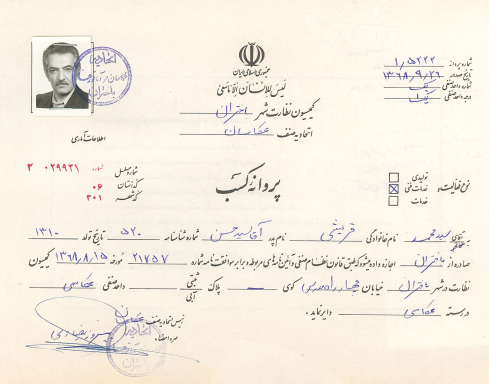 جمهوری اسلامی ایران
لیس للانسان الا ماسعی
کمیسیون نظارت شهر باختران
اتحادیه صنف عکاسان
شماره پروانه ۱/۵۲۲۲
تاریخ صدور ۱۳۶۸/۹/۲۶
شماره واحد صنفی یک
درجه واحد صنفی یک
اطلاعات آماری
شماره مسلسل ۰۲۹۹۲۱ ۳
کد استان ۰۶
کد شعبه ۳۰۱
پروانه کسب
نوع فعالیت:
تولیدی
خدمات فنی
خدمات
به آقای سید محمد نام خانوادگی قریشی نام پدر آقا سید حسن شماره شناسنامه ۵۲۰ تاریخ تولد ۱۳۱۰
صادره از باختران اجازه داده میشود که طبق قانون نظام صنفی و آئین نامه های مربوطه و برابر موافقت نامه شماره ۲۱۷۵۷ مورخه ۱۳۶۸/۸/۱۵ کمیسیون
نظارت در شهر باختران خیابان مدرس کوی — پلاک ثبتی آبی — واحد صنفی عکاسی
در رسته عکاسی دایر نماید.
رئیس اتحادیه صنف عکاسان
مهر و امضاء